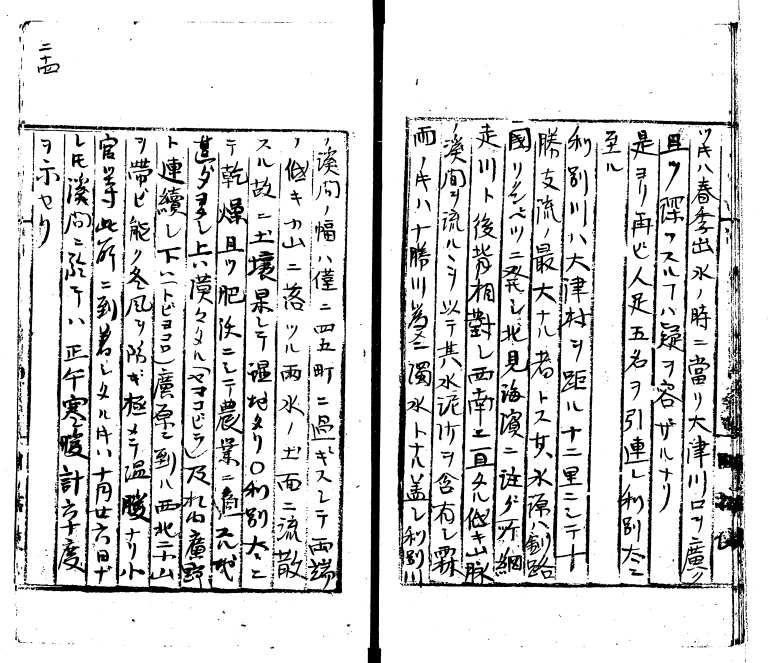 ツキハ春季出水ノ時ニ當リ大津川口ヲ廣ク
且ツ深フスルフハ疑ヲ容ザルナリ
是ヨリ再ビ人足五名ヲ引連レ利別太ニ
至ル
利別川ハ大津村ヲ距ル十二里ニシテ十
勝支流ノ最大ナル者トス其水源ハ釧路
國リクンベツニ発シ北見海濱ニ注グ所網
走川ト後背相對シ西南ニ亘タル低キ山脉
ノ溪間ヲ流ルヽヲ以テ其水泥沙ヲ含有シ霖
雨ノキハ十勝川為ニ濁水トナル蓋シ利別川
ノ溪間ノ幅ハ僅ニ四五町ニ過ギスシテ両端
ノ低キ山ニ落ツル雨水ノ土面ニ流散
スル故ニ土壤果シテ湿地タリ○利別太ニ
テ乾燥且ツ肥沃ニシテ農業ニ適スル地
甚ダヨタシ上ハ漠々タル「ヤマコビラ」及
ト連續シ下ハ「トビヨコロ」廣原ニ到ル西北ニ山
ヲ帯ビ能ク冬風ヲ防ギ極メテ温暖ナリ小
官等此所ニ到着シタルキハ十月廿六日ナ
レ圧溪間ニ於テハ正午寒暖計六十度
ヲ示セリ
二十四